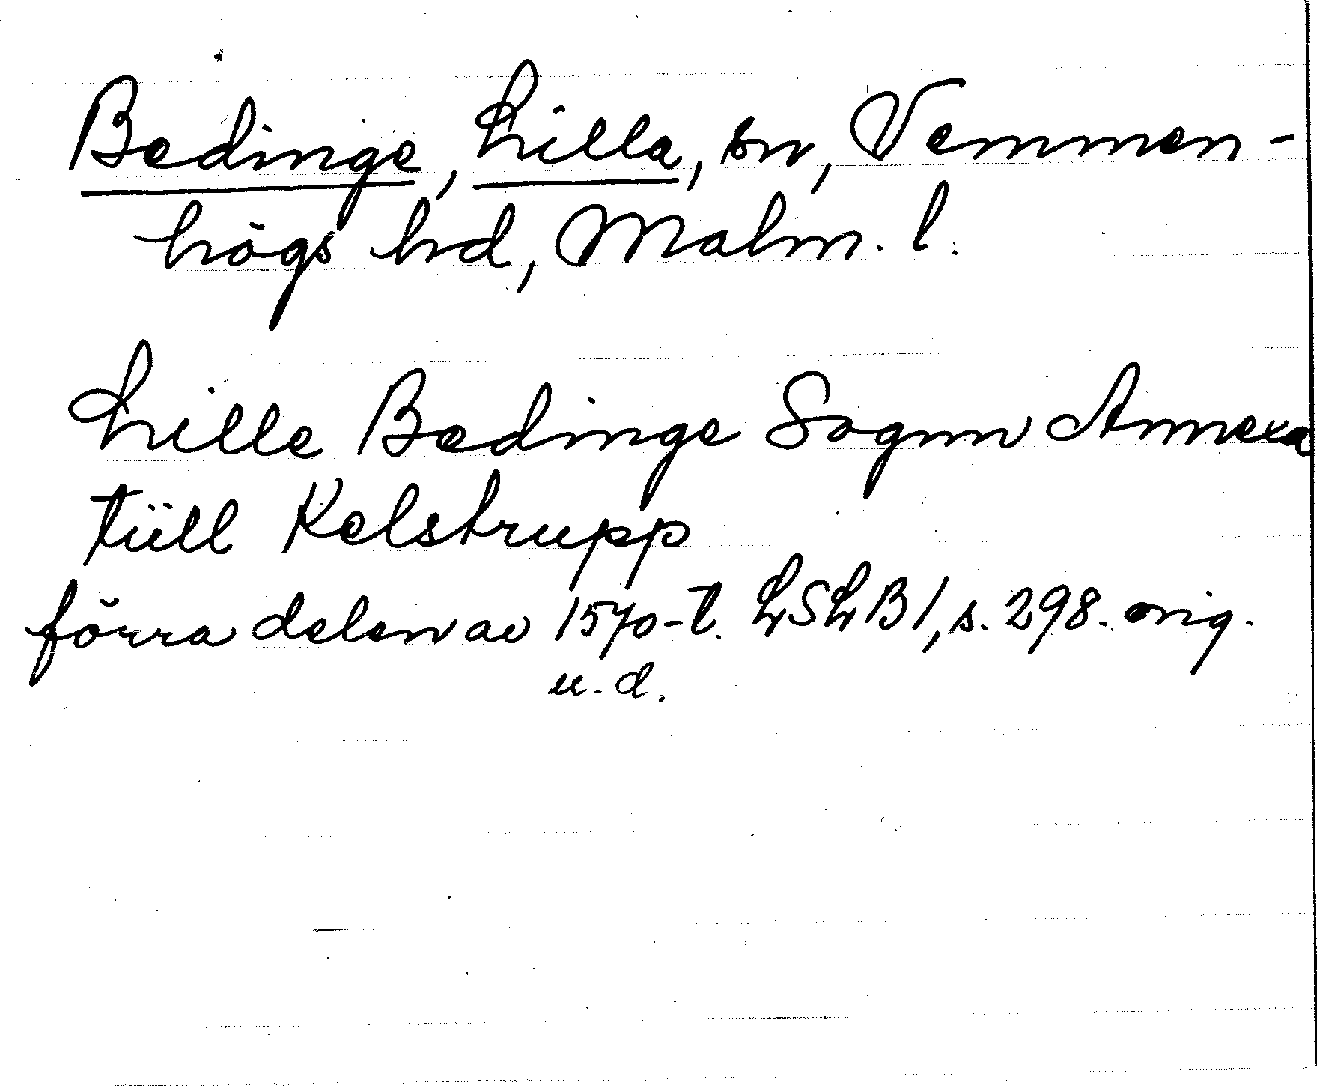 Bedinge, Lilla, sn, Vemmen-
högs hd, Malm. l.
Lille Bedinge Sognn Annexa
tüll Kelstrupp
förra delen av 1570-t. LSLB1, s. 298. orig.
u.d.